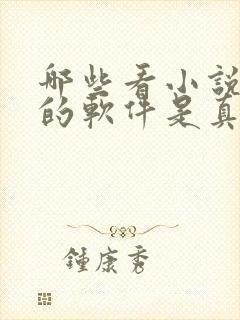 那些看小説
的軟件是真
鍾康秀